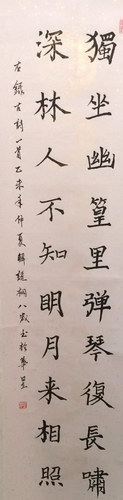 獨坐幽篁里弹琴復長嘯
深林人不知明月来相照
右錄古詩一首乙未年仲夏
八歲書於